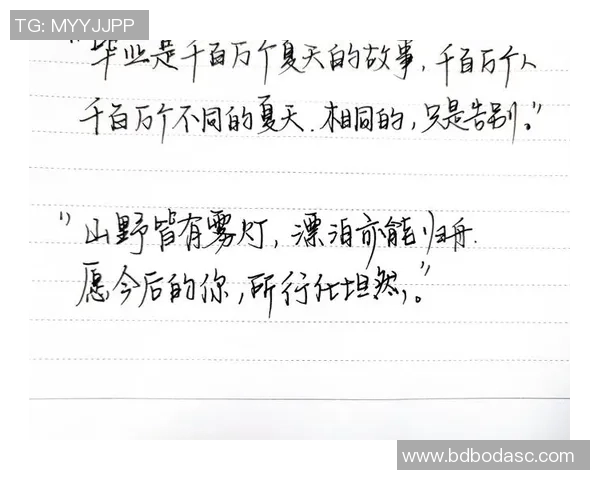 TG: MYYJJPP
"毕业是千百万个夏天的故事,千百万个人
千百万个不同的夏天.相同的,只是告别。"
"山野皆有雾灯,漂泊亦能归舟.
愿今后的你,所行化坦然,。"
www.bdbodasc.com